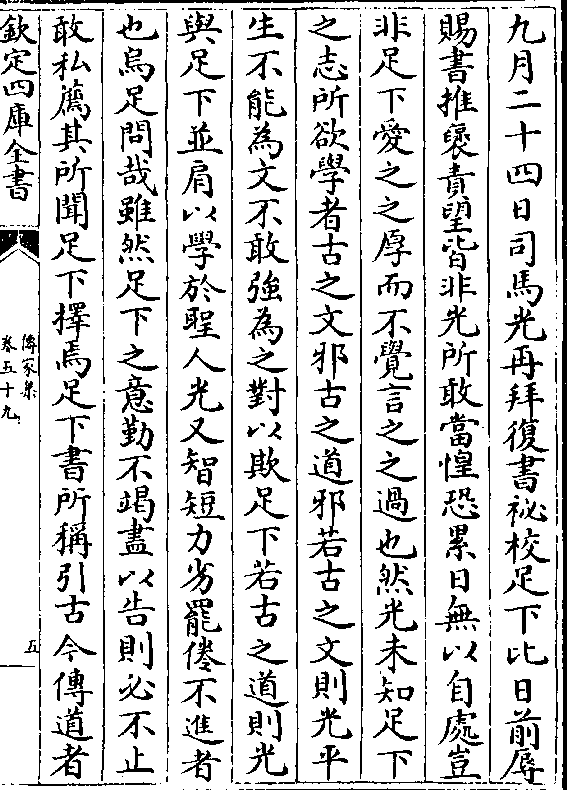 九月二十四日司馬光再拜復書祕校足下比日前辱
賜書推襃責望皆非光所敢當惶恐累日無以自處豈
非足下愛之之厚而不覺言之之過也然光未知足下
之志所欲學者古之文邪古之道邪若古之文則光平
生不能為文不敢強為之對以欺足下若古之道則光
與足下並肩以學於聖人光又智短力劣罷倦不進者
也烏足問哉雖然足下之意勤不竭盡以告則必不止
敢私薦其所聞足下擇焉足下書所稱引古今傳道者
欽定四庫全書
傳家集
卷五十九
五